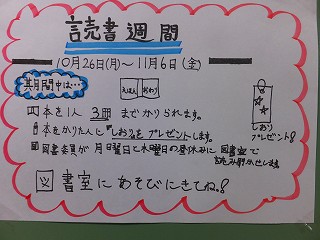 読書週間
10月26日(月)〜11月6日(金)
其月間中は…
えほん おわり
本を1人 3冊 までかりられます。
本をかりた人に "しおり"を プレゼントします。
しおり
プレゼント!
図書委員が 月曜日と木曜日の昼休みに 図書室で
読み聞かせします
図書室にあそびにきてね。!